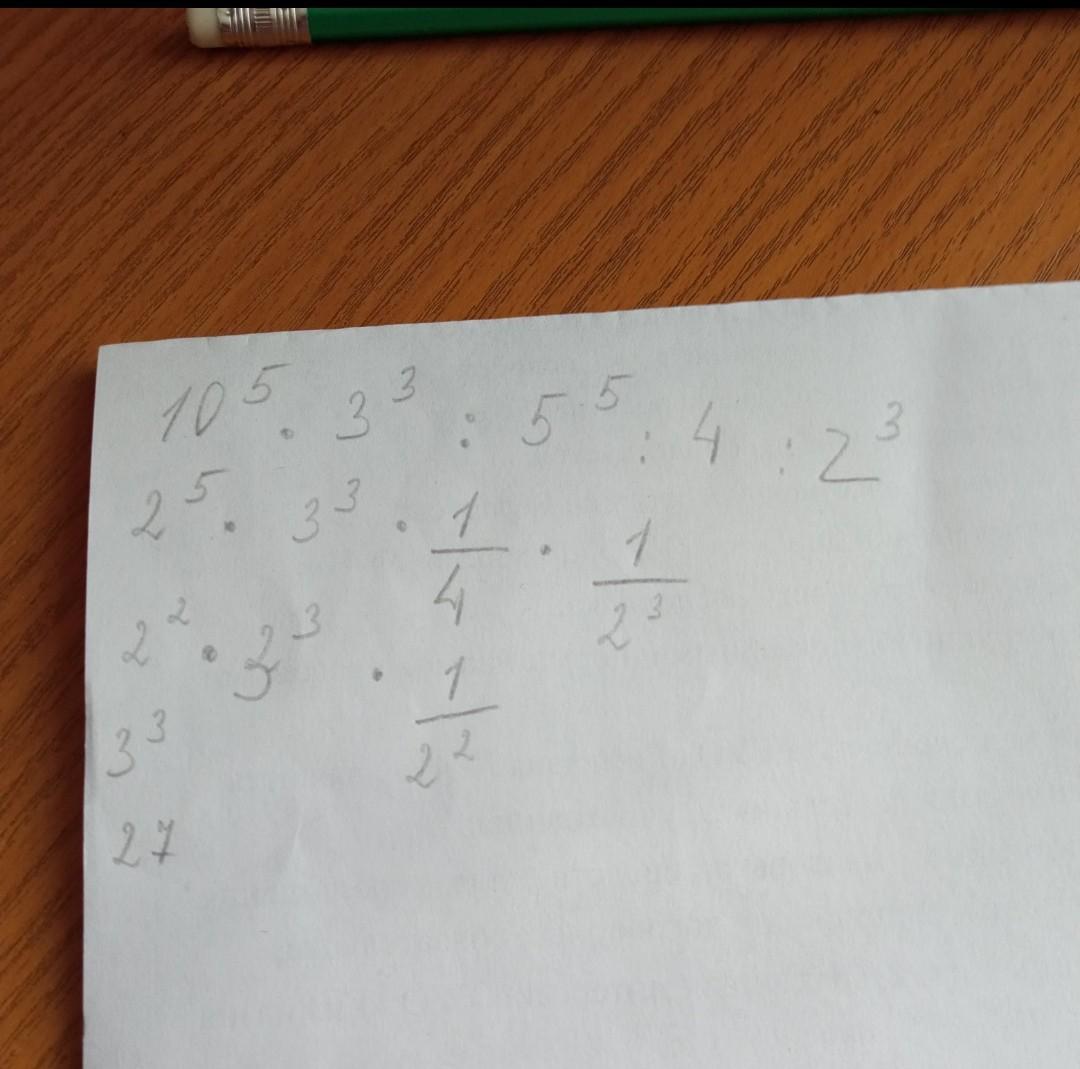 10⁵ · 3³ : 5⁵ : 4 : 2³
2⁵ · 3³ · 1/4 · 1/2³
2² · 3³ · 1/2²
3³
27